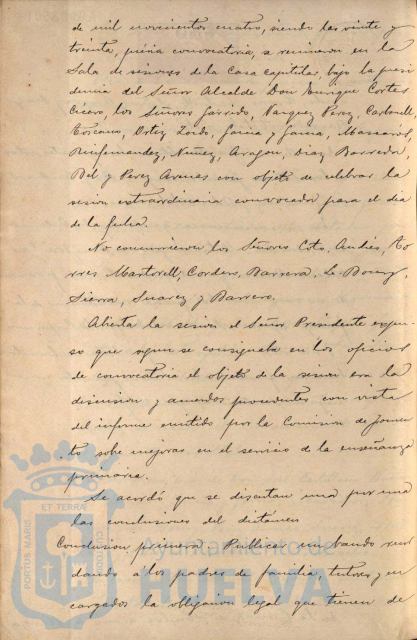 de mil novecientos cuatro, siendo las veinte y
treinta, prévia convocatoria, se reunieron en la
Sala de sesiones de la Casa capitular, bajo la presi
dencia del Señor Alcalde Don Enrique Cortes
Cicero, los Señores Garrido, Vazquez Perez, Carbonell,
Toscano, Ortiz Zoido, Garcia y Garcia, Massarol,
Ruifernandez, Nuñez, Aragon, Diaz Barreda,
Bel y Perez Arenas con objeto de celebrar la
sesion extraordinaria convocada para el dia
de la fecha.
No concurrieron los Señores Coto, Andés, To
rres Martorell, Cordero, Barrera, Le-Bourg,
Sierra, Suarez y Barrero.
Abierta la sesion el Señor Presidente expu-
so que segun se consignaba en los oficios
de convocatoria el objeto de la sesion era la
discusion y acuerdos procedentes con vista
del informe emitido por la Comision de Fomen
to sobre mejoras en el servicio de la enseñanza
primaria.
Se acordó que se discutan una por una
las conclusiones del dictámen
Conclusion primera. Publicar un bando recor
dando á los padres de familia, tutores y en
cargados la obligacion legal que tienen de
ET TERRAE
PORTUS MARIS
CUSTODIA
Ayuntamiento de
HUELVA